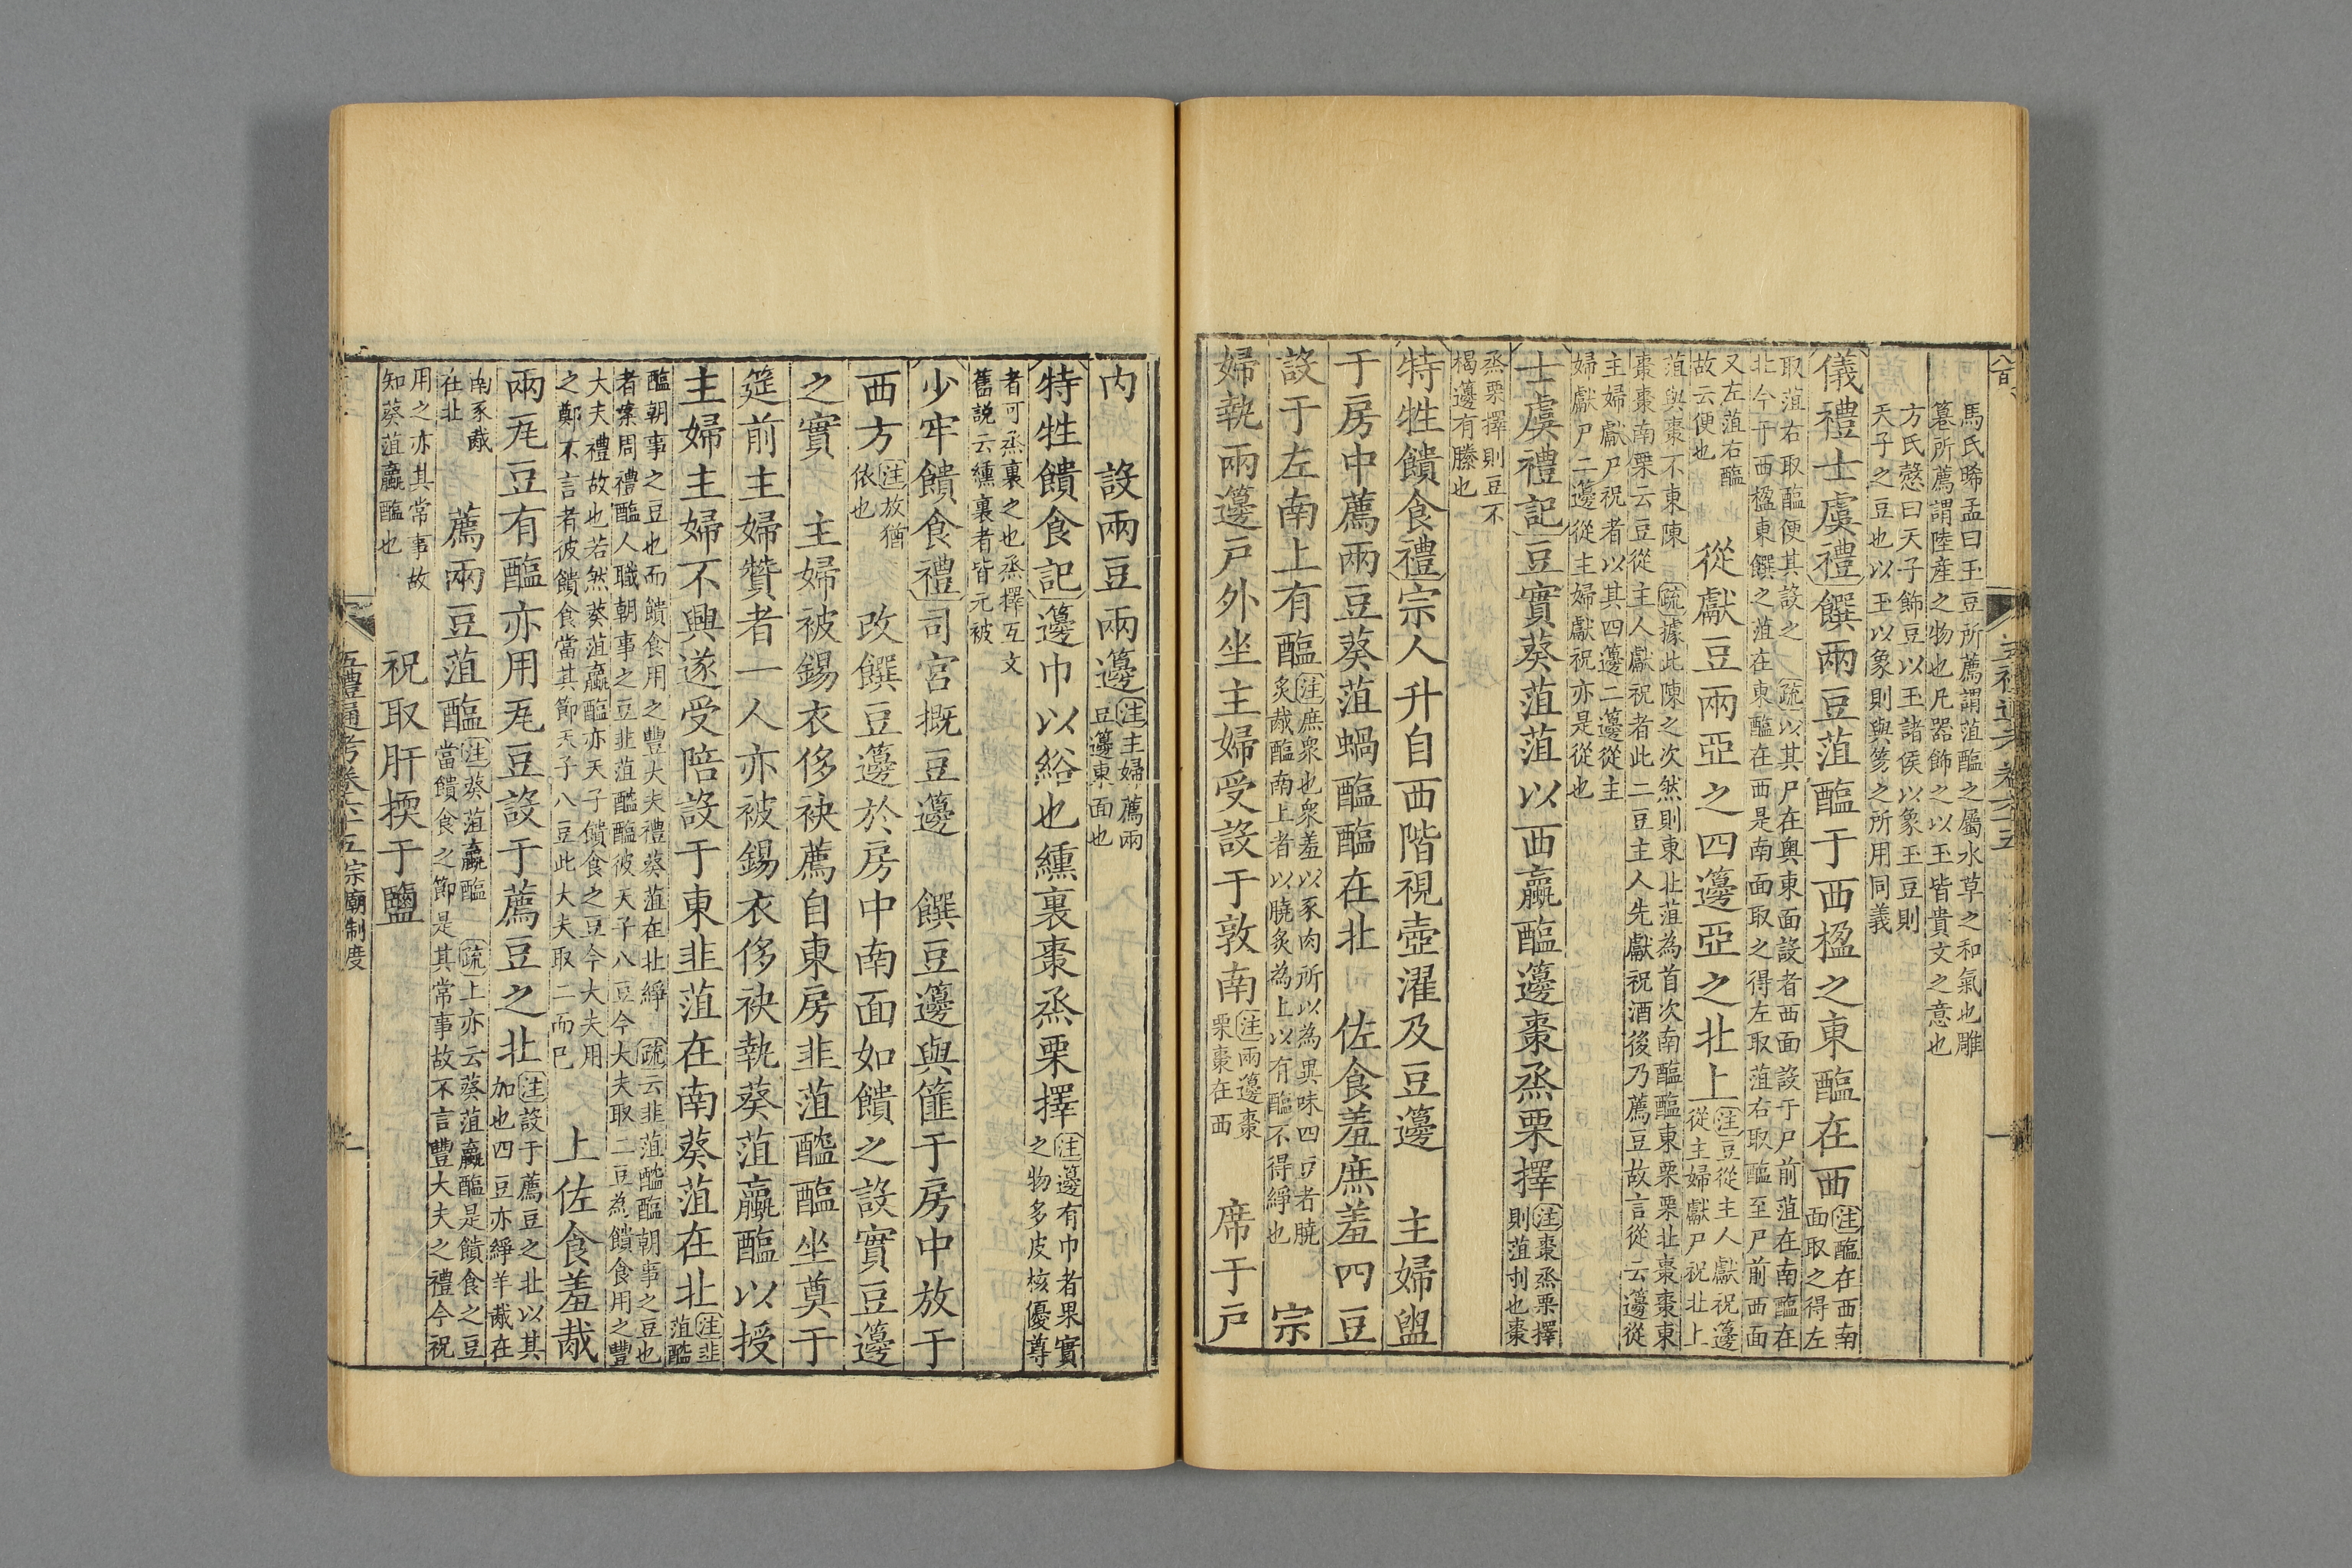 馬氏晞孟曰玉豆所薦謂菹醢之屬水草之和氣也雕
篹所薦謂陸産之物也凡器飾之以玉皆貴文之意也
方氏慤曰天子飾豆以玉諸侯以象玉豆則
天子之豆也以玉以象則與笏之所用同義
儀禮士虞禮饌兩豆菹醢于西楹之東醢在西注醢在西南
面取之得左
取菹右取醢便其設之疏以其尸在奥東面設者西面設于尸前菹在南醢在
北今于西楹東饌之菹在東醢在西是南面取之得左取菹右取醢至尸前西面
又左菹右醢
故云便也
從獻豆兩亞之四籩亞之北上注豆從主人獻祝籩
從主婦獻尸祝北上
菹與棗不東陳疏據此陳之次然則東北菹為首次南醢醢東栗栗北棗棗東
棗棗南栗云豆從主人獻祝者此二豆主人先獻祝酒後乃薦豆故言從云籩從
主婦獻尸祝者以其四籩二籩從主
婦獻尸二籩從主婦獻祝亦是從也
士虞禮記豆實葵菹菹以西蠃醢籩棗烝栗擇注棗烝栗擇
則菹刌也棗
烝栗擇則豆不
楬籩有縢也
特牲饋食禮宗人升自西階視壺濯及豆籩　主婦盥
于房中薦兩豆葵菹蝸醢醢在北　佐食羞庶羞四豆
設于左南上有醢注庶衆也衆羞以豕肉所以為異味四豆者膮
炙胾醢南上者以膮炙為上以有醢不得綪也　宗
婦執兩籩户外坐主婦受設于敦南注兩籩棗
栗棗在西　席于户
内　設兩豆兩籩注主婦薦兩
豆籩東面也
特牲饋食記籩巾以綌也纁裏棗烝栗擇注籩有巾者果實
之物多皮核優尊
者可烝裹之也烝擇互文
舊説云纁裏者皆元被
少牢饋食禮司宫摡豆籩　饌豆籩與篚于房中放于
西方注放猶
依也　改饌豆籩於房中南面如饋之設實豆籩
之實　主婦被錫衣侈袂薦自東房韭菹醓醢坐奠于
筵前主婦贊者一人亦被錫衣侈袂執葵菹蠃醢以授
主婦主婦不興遂受陪設于東韭菹在南葵菹在北注韭
菹醓
醢朝事之豆也而饋食用之豐大夫禮葵菹在北綪疏云韭菹醓醢朝事之豆也
者案周禮醢人職朝事之豆韭菹醓醢彼天子八豆今大夫取二豆為饋食用之豐
大夫禮故也若然葵菹蠃醢亦天子饋食之豆今大夫用
之鄭不言者彼饋食當其節天子八豆此大夫取二而已　上佐食羞胾
兩瓦豆有醢亦用瓦豆設于薦豆之北注設于薦豆之北以其
加也四豆亦綪羊胾在
南豕胾
在北　薦兩豆菹醢注葵菹蠃醢疏上亦云葵菹蠃醢是饋食之豆
當饋食之節是其常事故不言豐大夫之禮今祝
用之亦其常事故
知葵菹蠃醢也　祝取肝擩于鹽
五禮通考卷六十五宗廟制度